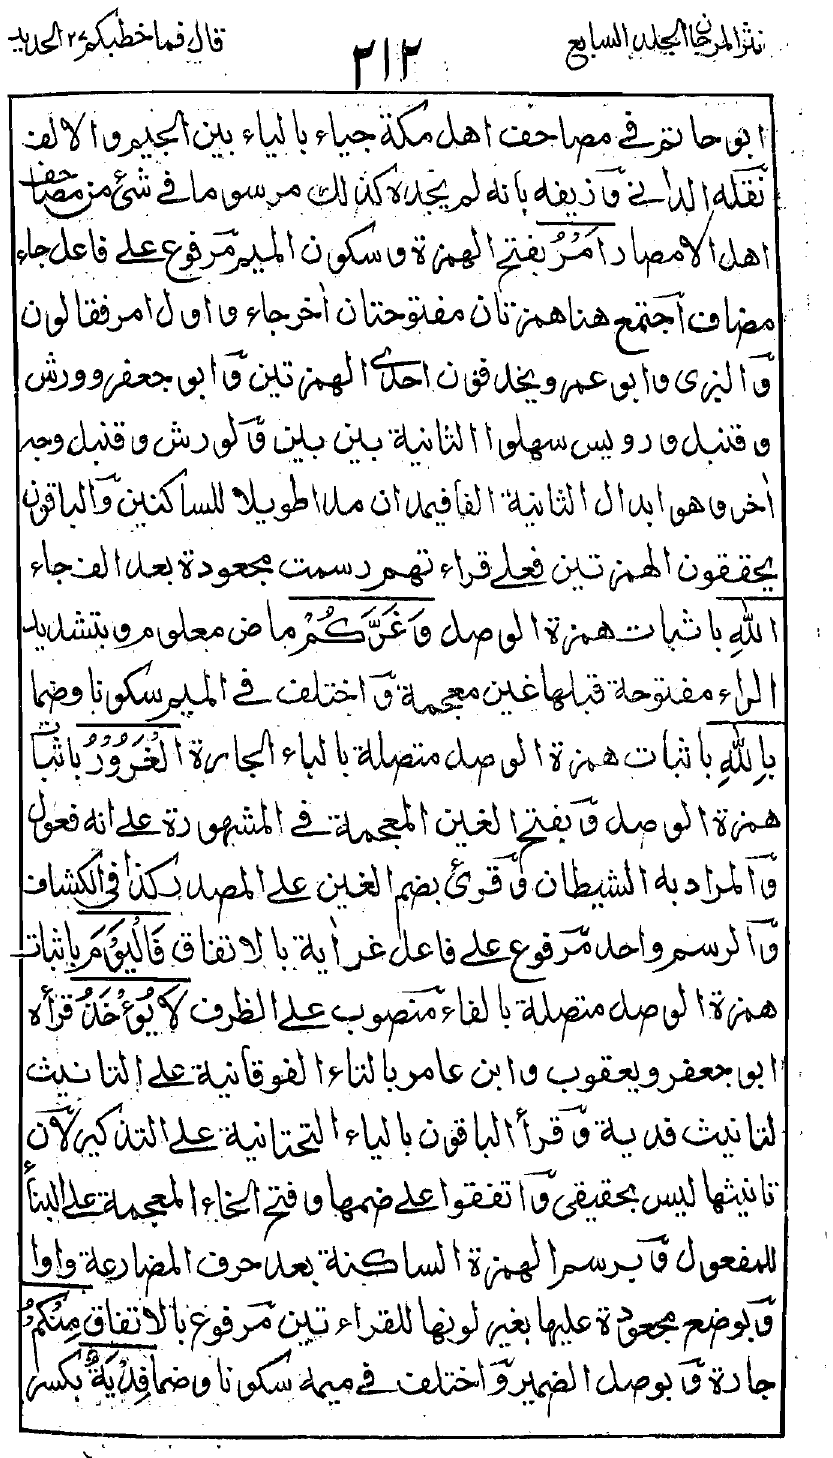 نثر المرجان الجلد السابع ٢١٢ قال فما خطبكم ٢٧ الحديد
ابو حاتم في مصاحف اهل مكة جياء بالياء بين الجيم والالف
نقله الداني وزيفه بانه لم يجده كذلك مرسوما في شئ من مصاحف
اهل الامصار اَمْرُ بفتح الهمزة وسكون الميم مرفوع على فاعل جاء
مضاف اجتمع هنا همزتان مفتوحتان اٰخر جاء واول امر فقالون
والبزى وابو عمرو يحذفون احدى الهمزتين وابو جعفر وورش
وقنبل ورويس سهلوا الثانية بين بين ولورش وقنبل وجه
اٰخر وهو ابدال الثانية الفا فيمدان مدا طويلا للساكنين والباقون
يحققون الهمزتين فعلى قراءتهم رسمت مجعودة بعد الف جاء
اللهِ باثبات همزة الوصل وَغَرَّكُمْ ماض معلوم وبتشديد
الراء مفتوحة قبلها غين معجمة واختلف في الميم سكونا وضما
بِاللهِ باثبات همزة الوصل متصلة بالباء الجارة الْغَرُوْرُ باثبات
همزة الوصل وبفتح الغين المعجمة في المشهورة على انه فعول
والمراد به الشيطان وقرئ بضم الغين على المصدر كذا في الكشاف
والرسم واحد مرفوع على فاعل غر اٰية بالاتفاق فَالْيَوْمَ باثبات
همزة الوصل متصلة بالفاء منصوب على الظرف لَا يُؤْخَذُ قرأه
ابو جعفر ويعقوب وابن عامر بالتاء الفوقانية على التانيث
لتانيث فدية وقرأ الباقون بالياء التحتانية على التذكير لان
تانيثها ليس بحقيقى واتفقوا على ضمها وفتح الخاء المعجمة على البناء
للمفعول وبرسم الهمزة الساكنة بعد حرف المضارعة واوا
وبوضع مجعودة عليها بغير لونها للقراءتين مرفوع بالاتفاق مِنْكُمْ
جارة وبوصل الضمير واختلف في ميمه سكونا وضما فِدْيَةٌ بكسر